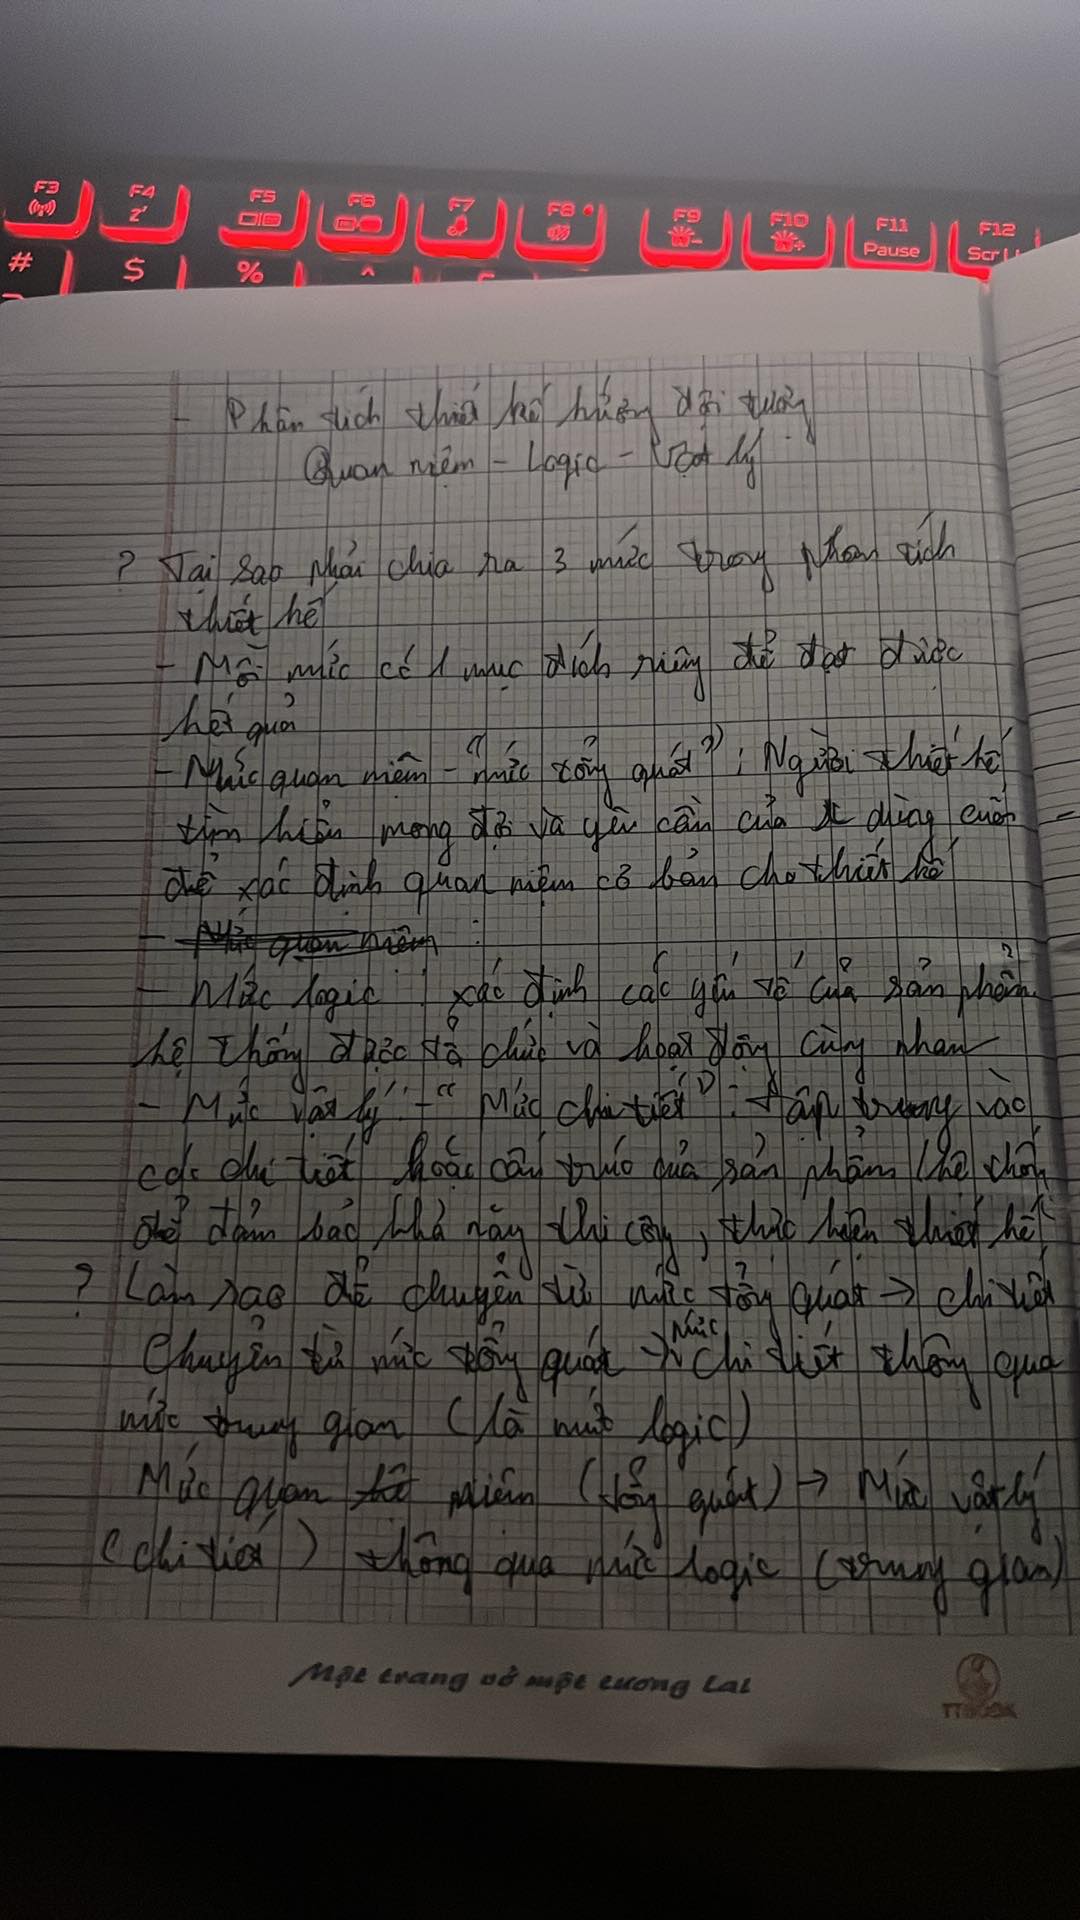 F3 F4 F5 F6 F7 F8 F9 F10 F11 F12
z Pause Scr
# $ % ^
- Phân tích thiết kế hướng đối tượng
Quan niệm - Logic - Vật lý
? Tại sao phải chia ra 3 mức trong phân tích
thiết kế
- Mỗi mức có 1 mục đích riêng để đạt được
kết quả
- Mức quan niệm - "mức tổng quát": Người thiết kế
tìm hiểu mong đợi và yêu cầu của dùng cuối
để xác định quan niệm cơ bản cho thiết kế
- Mức quan niệm :
- Mức logic : xác định các yếu tố của sản phẩm
hệ thống được tổ chức và hoạt động cùng nhau
- Mức vật lý - "Mức chi tiết": tập trung vào
các chi tiết hoặc cấu trúc của sản phẩm (hệ thống
để đảm bảo khả năng thi công, thực hiện thiết kế
? Làm sao để chuyển từ mức tổng quát → chi tiết
Chuyển từ mức tổng quát → mức chi tiết thông qua
mức trung gian (là mức logic)
Mức quan niệm (tổng quát) → Mức vật lý
(chi tiết) thông qua mức logic (trung gian)
Một trang vở một tương lai